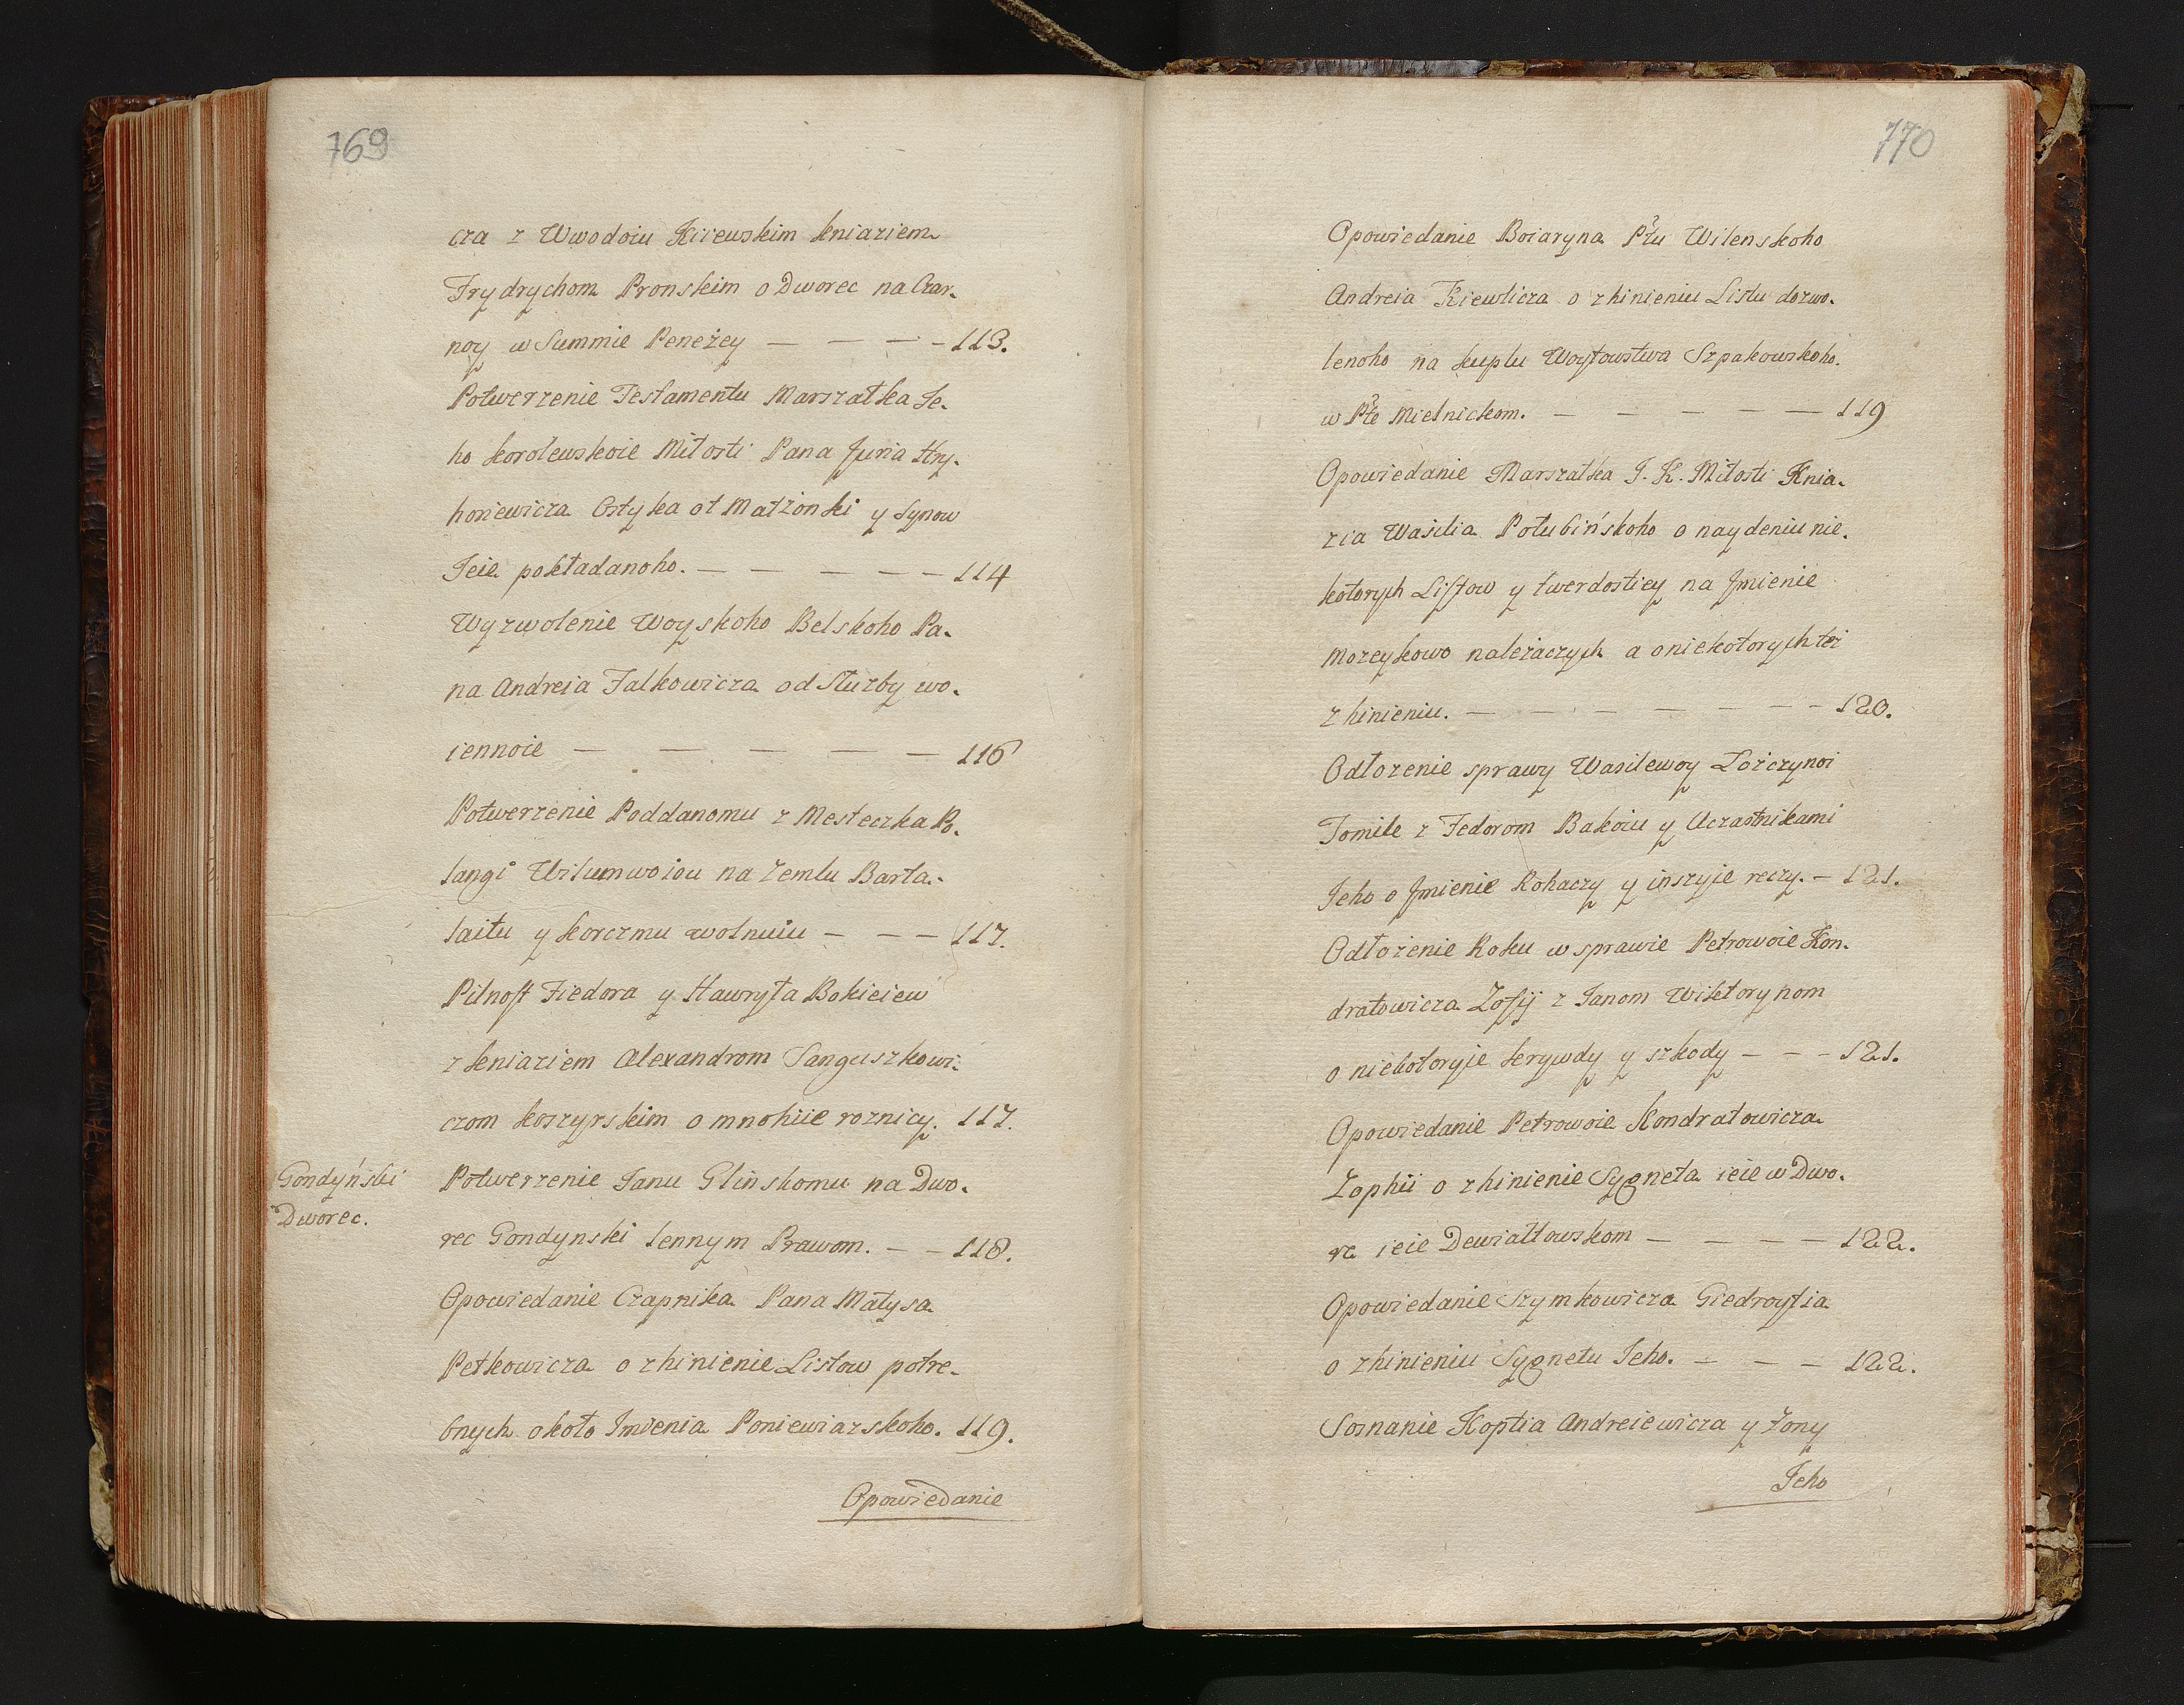 769
cza z Wwodoiu Kiiewskim kniaziem
Frydrychom Pronskim o Dworec na Czar-
noy w Summie Peneżey — — — - 113.
Potwerzenie Testamentu Marszałka Je-
ho korolewskoie Miłosti Pana Juria Hry-
horiewicza Ostyka ot Małżonki y Synow
Jeie pokładanoho. — — — — — 114
Wyzwolenie Woyskoho Belskoho Pa-
na Andreia Falkowicza od Służby wo-
iennoie — — — — — 116
Potwerzenie Poddanomu z Mesteczka Po-
langi Wilumwoiou na Zemlu Barta-
laitu y korczmu wolnuiu — — — 117.
Pilnost Fiedora y Hawryła Bokieiew
z kniaziem Alexandrom Sanguszkowi-
czom koszyrskim o mnohiie roznicy. 117.
Gondyński
Dworec.
Potwerzenie Janu Glinskomu na Dwo-
rec Gondynski lennym Prawom. — — 118.
Opowiedanie Czapnika Pana Matysa
Petkowicza o zhinienie Listow potre-
bnych około Imienia Poniewiazskoho. 119.
Opowiedanie
770
Opowiedanie Boiaryna Płu Wilenskoho
Andreia Kiewlicza o zhinieniu Listu dozwo-
lenoho na kuplu Woytowstwa Szpakowskoho.
w Płe Mielnickom. — — — — — 119
Opowiedanie Marszałka J. K. Miłosti Knia-
zia Wasilia Połubińskoho o naydeniu nie-
kotorych Listow y twerdostiey na Jmienie
Mozeykowo należaczych a o niekotorych też
zhinieniu. — — — — — — 120.
Odłożenie sprawy Wasilewoy Łożczynoi
Tomile z Fedorom Bakoiu y Uczastnikami
Jeho o Jmienie Rohaczy y inszyie reczy. — 121.
Odłożenie Roku w sprawie Petrowoie Kon-
dratowicza Zofij z Janom Wiktorynom
o niekotoryie krywdy y szkody — — — 121.
Opowiedanie Petrowoie Kondratowicza
Zophii o zhinienie Sygneta ieie w Dwo-
re ieie Dewiałtowskom — — — — 122.
Opowiedanie Szymkowicza Giedroytia
o zhinieniu Sygnetu Jeho. — — — 122.
Soznanie Koptia Andreiewicza y Zony
Jeho